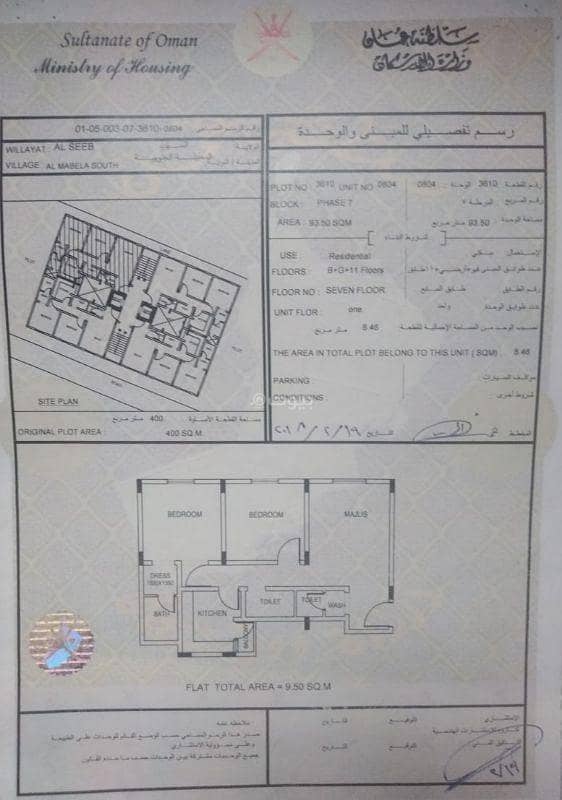 Sultanate of Oman
Ministry of Housing
سلطنة عمان
وزارة الإسكان
01-05-003-07-3610-0804
رسم تفصيلي للمبنى والوحدة
WILLAYAT: AL SEEB
VILLAGE: AL MABELA SOUTH
PLOT NO 3610 UNIT NO 0804
0804 الوحدة: 3610 رقم القطعة
BLOCK : PHASE 7
المرحلة ٧
AREA : 93.50 SQM
93.50 متر مربع مساحة الوحدة
شروط البناء
USE : Residential
سكني
FLOORS: B+G+11 Floors
FLOOR NO : SEVEN FLOOR
الطابق السابع رقم الطابق
UNIT FLOR : one
واحد عدد طوابق الوحدة
8.46 متر مربع
THE AREA IN TOTAL PLOT BELONG TO THIS UNIT ( SQM) 8.46
PARKING :
مواقف السيارات :
CONDITIONS :
شروط أخرى
التاريخ ٢٠١٨/٢/١٩
المخطط
PLOT
PLOT
ROAD
SITE PLAN
400 متر مربع
ORIGINAL PLOT AREA : 400 SQ.M.
بيوت
BEDROOM
BEDROOM
MAJLIS
DRESS
BATH
KITCHEN
TOILET
TOILET
WASH
BALCONY
FLAT TOTAL AREA = 9.50 SQ.M
الإستشاري
التوقيع
التاريخ
ملاحظة عامة
التوقيع
التاريخ